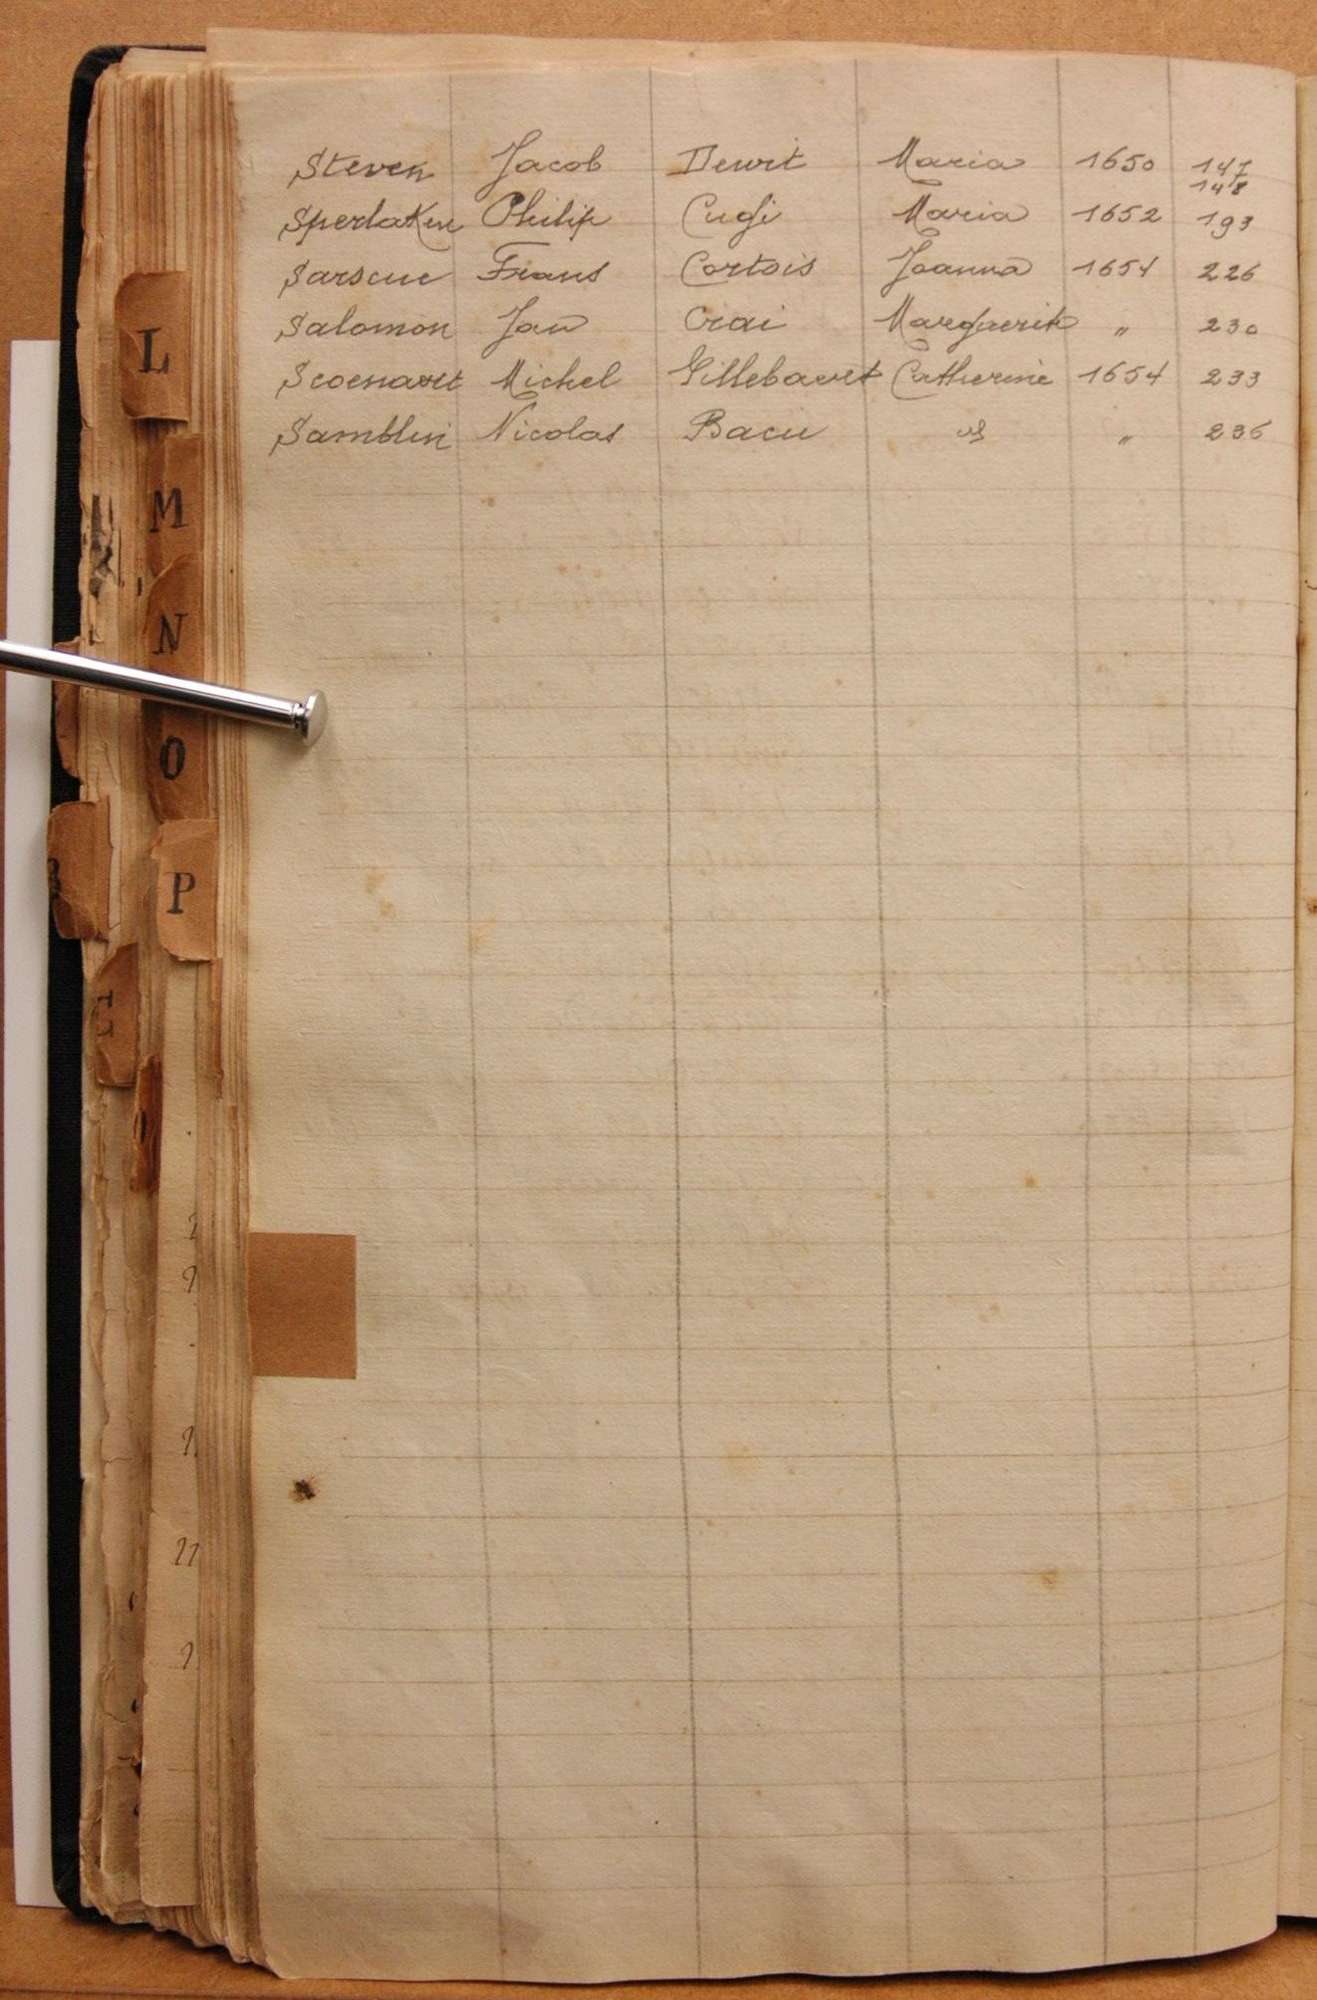 Steven Jacob Dewit Maria 1650 147
148
Sperlaken Philip Cugi Maria 1652 193
Sarscue Frans Cortois Joanna 1654 226
Salomon Jan Crai Margaerite „ 230
Scoenaert Michel Gillebaert Catherine 1654 233
Samblin Nicolas Bacu „ 236
L
M
N
O
P